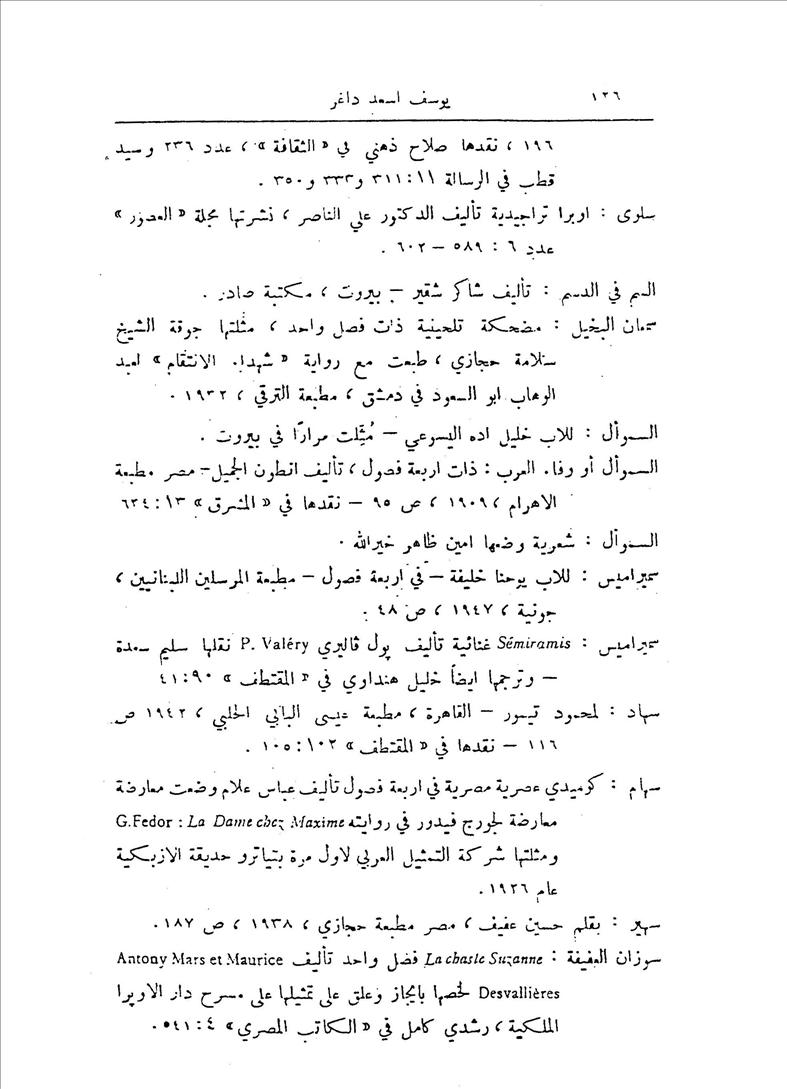 ١٢٦ يوسف اسعد داغر
١٩٦ ، نقدها صلاح ذهني في « الثقافة » ، عدد ٢٣٦ وسيد
قطب في الرسالة ١١ : ٣١١ و ٣٣٣ و ٣٥٠ .
سلوى : اوبرا تراجيدية تأليف الدكتور علي الناصر ، نشرتها مجلة « العصور »
عدد ٦ : ٥٨٩ – ٦٠٢ .
السم في الدسم : تأليف شاكر شقير – بيروت ، مكتبة صادر .
سمعان البخيل : مضحكة تلحينية ذات فصل واحد ، مثلتها جوقة الشيخ
سلامة حجازي ، طبعت مع رواية « شهداء الانتقام » لعبد
الوهاب ابو السعود في دمشق ، مطبعة الترقي ، ١٩٣٢ .
السموأل : للاب خليل اده اليسوعي – مُثِّلت مرارًا في بيروت .
السموأل أو وفاء العرب : ذات اربعة فصول ، تأليف انطون الجميل – مصر مطبعة
الاهرام ، ١٩٠٩ ، ص ٩٥ – نقدها في « المشرق » ١٣ : ٦٣٤
السموأل : شعرية وضعها امين ظاهر خيرالله .
سميراميس : للاب يوحنا خليفة – في اربعة فصول – مطبعة المرسلين اللبنانيين ،
جونية ، ١٩٤٧ ، ص ٤٨ .
سميراميس : Sémiramis غنائية تأليف پول ڤاليري P. Valéry نقلها سليم سعدة
– وترجمها ايضاً خليل هنداوي في « المقتطف » ٩٠ : ٤١
سهاد : لمحمود تيمور – القاهرة ، مطبعة عيسى البابي الحلبي ، ١٩٤٢ ص
١١٦ – نقدها في « المقتطف » ١٠٢ : ١٠٥ .
سهام : كوميدي عصرية مصرية في اربعة فصول تأليف عباس علام وضعت معارضة
معارضة لجورج فيدور في روايته G.Fedor : La Dame chez Maxime
ومثلتها شركة التمثيل العربي لاول مرة بتياترو حديقة الازبكية
عام ١٩٢٦ .
سهير : بقلم حسين عفيف ، مصر مطبعة حجازي ، ١٩٣٨ ، ص ١٨٧ .
سوزان العفيفة : La chaste Suzanne فصل واحد تأليف Antony Mars et Maurice
Desvallières لخصها بايجاز وعلق على تمثيلها على مسرح دار الاوپرا
الملكية ، رشدي كامل في « الكاتب المصري » ٤ : ٥٤١ .